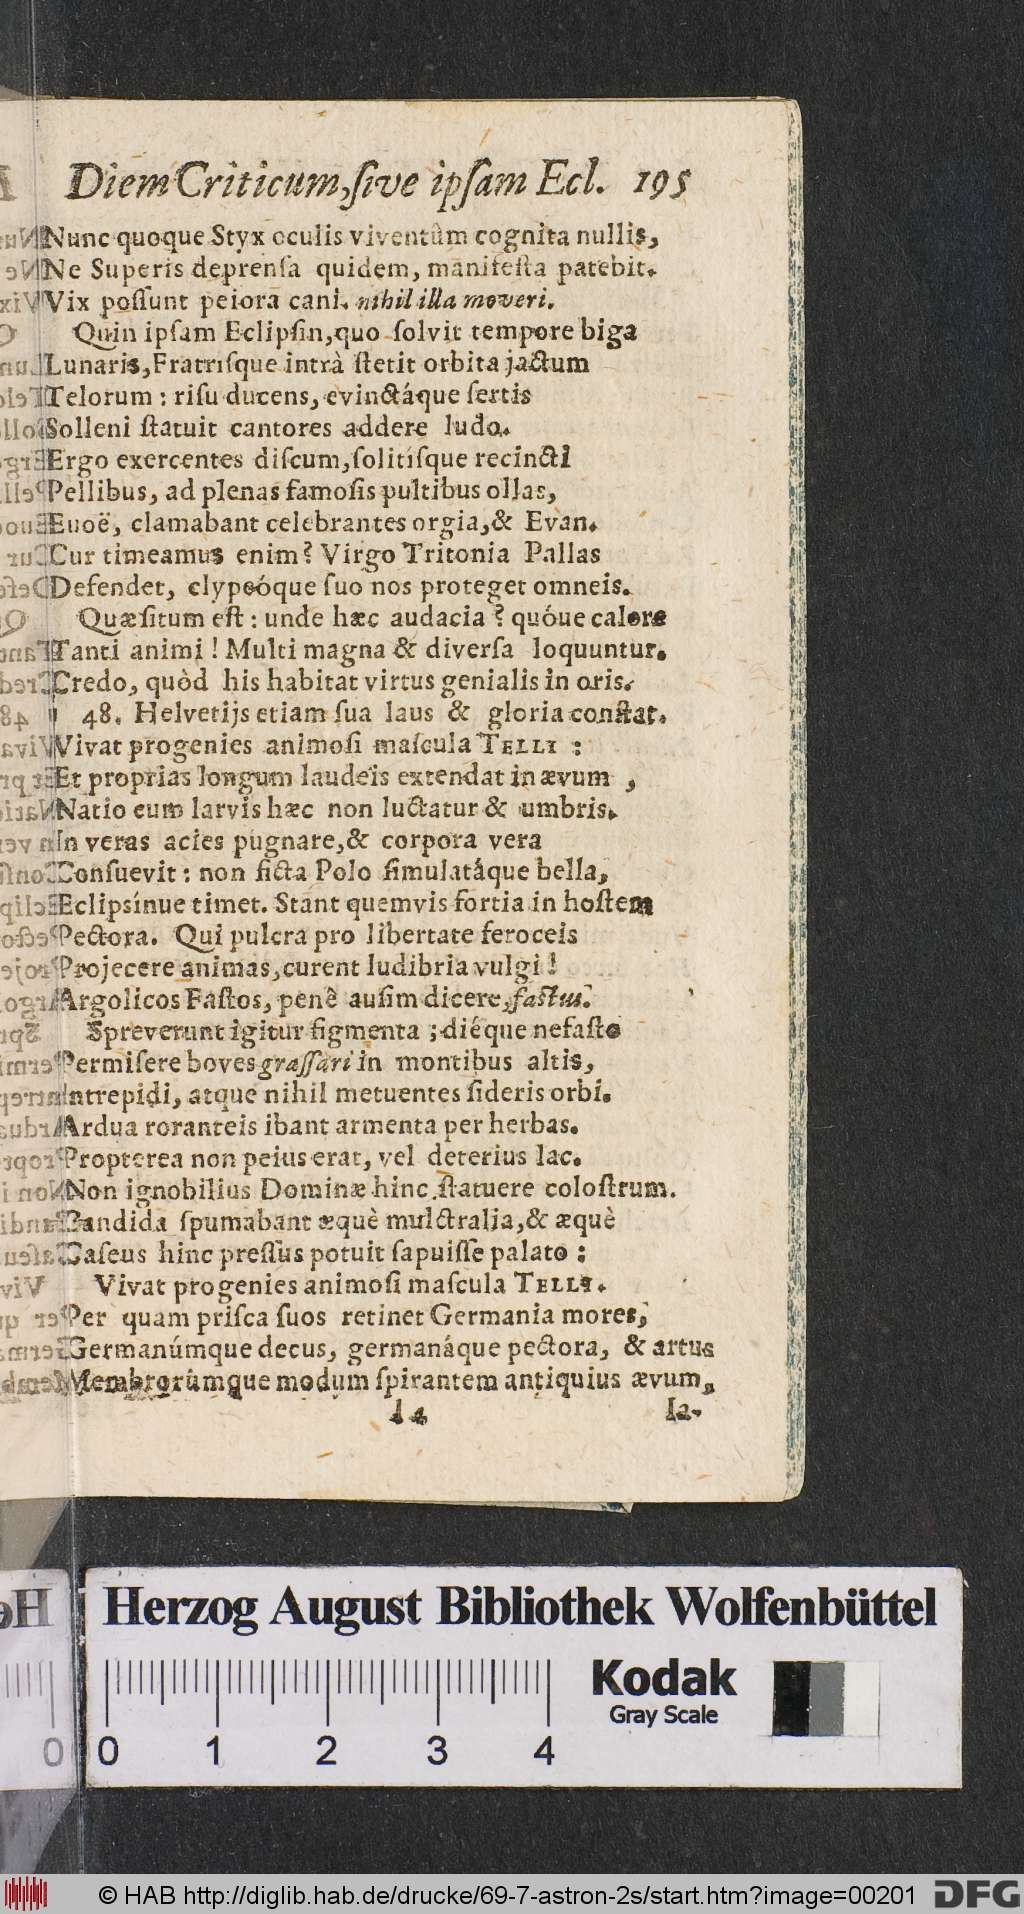 Diem Criticum, ſive ipſam Ecl. 195
Nunc quoque Styx oculis viventûm cognita nullis,
Ne Superis deprenſa quidem, manifeſta patebit.
Vix poſſunt peiora cani. nihil illa moveri.
Quin ipſam Eclipſin, quo ſolvit tempore biga
Lunaris, Fratriſque intrà ſtetit orbita jactum
Telorum : riſu ducens, evinctáque ſertis
Solleni ſtatuit cantores addere ludo.
Ergo exercentes diſcum, ſolitíſque recincti
Pellibus, ad plenas famoſis pultibus ollas,
Euoë, clamabant celebrantes orgia, & Evan.
Cur timeamus enim? Virgo Tritonia Pallas
Defendet, clypeóque ſuo nos proteget omneis.
Quæſitum eſt : unde hæc audacia ? quóue calore
Tanti animi ! Multi magna & diverſa loquuntur.
Credo, quòd his habitat virtus genialis in oris.
48. Helvetijs etiam ſua laus & gloria conſtat.
Vivat progenies animoſi maſcula TELLI :
Et proprias longum laudeis extendat in ævum ,
Natio cum larvis hæc non luctatur & umbris.
In veras acies pugnare, & corpora vera
Conſuevit : non ficta Polo ſimulatáque bella,
Eclipsínue timet. Stant quemvis fortia in hoſtem
Pectora. Qui pulcra pro libertate feroceis
Projecere animas, curent ludibria vulgi !
Argolicos Faſtos, penè auſim dicere, faſtus.
Spreverunt igitur figmenta ; diéque nefaſto
Permiſere boves graſſari in montibus altis,
Intrepidi, atque nihil metuentes ſideris orbi.
Ardua roranteis ibant armenta per herbas.
Propterea non peius erat, vel deterius lac.
Non ignobilius Dominæ hinc ſtatuere coloſtrum.
Candida ſpumabant æquè mulctralia, & æquè
Caſeus hinc preſſus potuit ſapuiſſe palato :
Vivat progenies animoſi maſcula TELLI.
Per quam priſca ſuos retinet Germania mores,
Germanúmque decus, germanáque pectora, & artus
Membrorúmque modum ſpirantem antiquius ævum,
Ia-
Herzog August Bibliothek Wolfenbüttel
Kodak
Gray Scale
0 0 1 2 3 4
© HAB http://diglib.hab.de/drucke/69-7-astron-2s/start.htm?image=00201 DFG